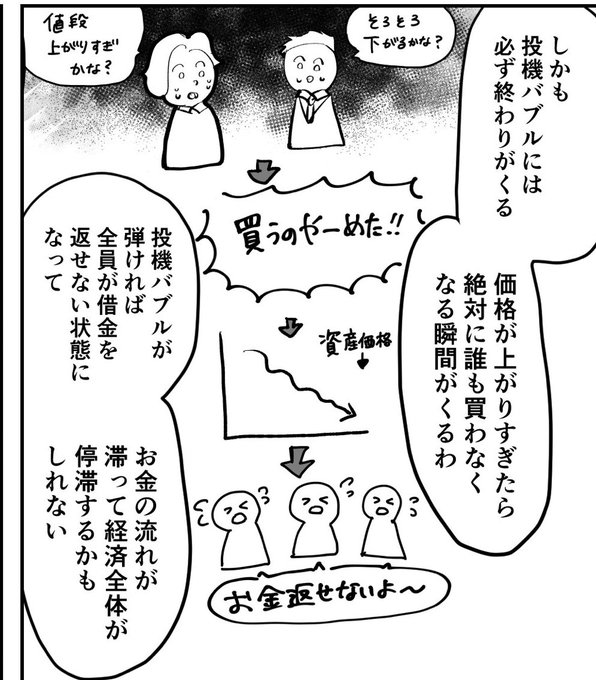 しかも
投機バブルには
必ず終わりがくる
価格が上がりすぎたら
絶対に誰も買わなく
なる瞬間がくるわ
そろそろ
下がるかな?
値段
上がりすぎ
かな?
買うのやーめた!!
資産価格
お金返せないよ〜
投機バブルが
弾ければ
全員が借金を
返せない状態に
なって
お金の流れが
滞って経済全体が
停滞するかも
しれない